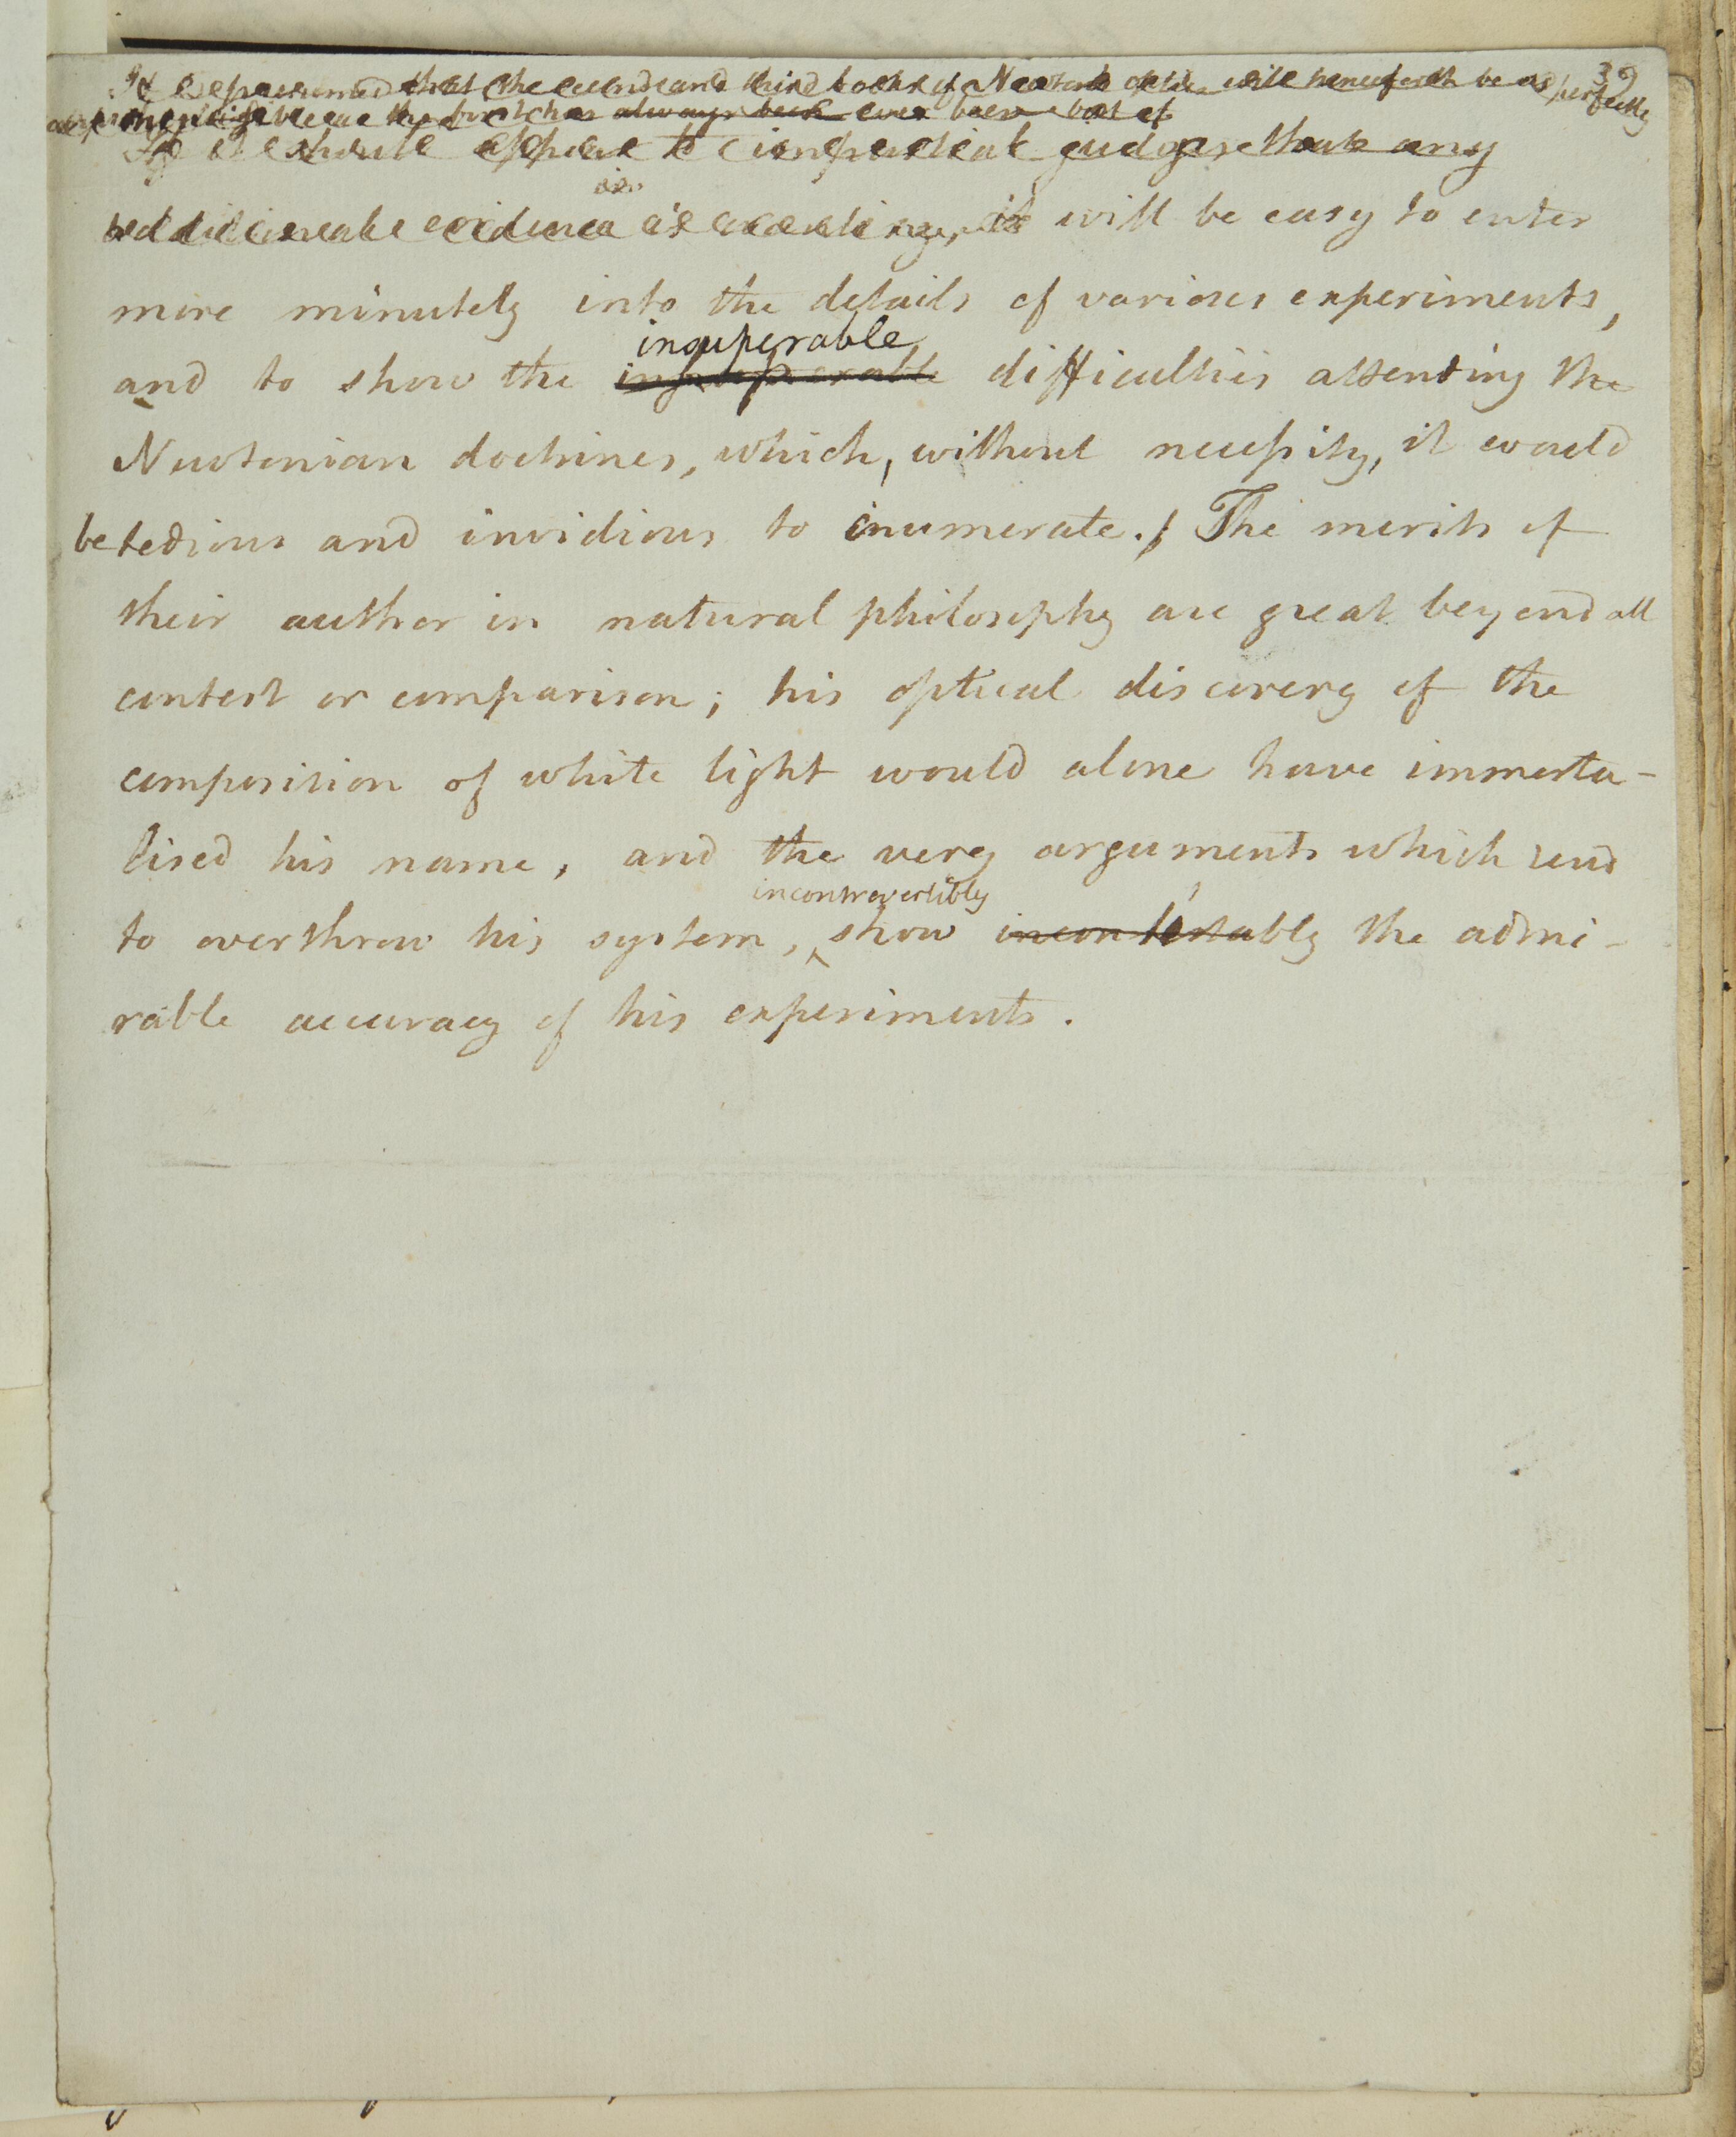 39
It is presumed that the second and third books of Newton's optics will henceforth be as perfectly
intelligible as the first has always been ever been but if
If it should appear to impartial judges that any
additional evidence is wanting, it will be easy to enter
more minutely into the details of various experiments,
insuperable
and to show the insuperable difficulties attending the
Newtonian doctrines, which, without necessity, it would
be tedious and invidious to enumerate. The merits of
their author in natural philosophy are great beyond all
contest or comparison; his optical discovery of the
composition of white light would alone have immorta-
lised his name, and the very arguments which tend
incontrovertibly
to overthrow his system, show incontestably the admi-
rable accuracy of his experiments.